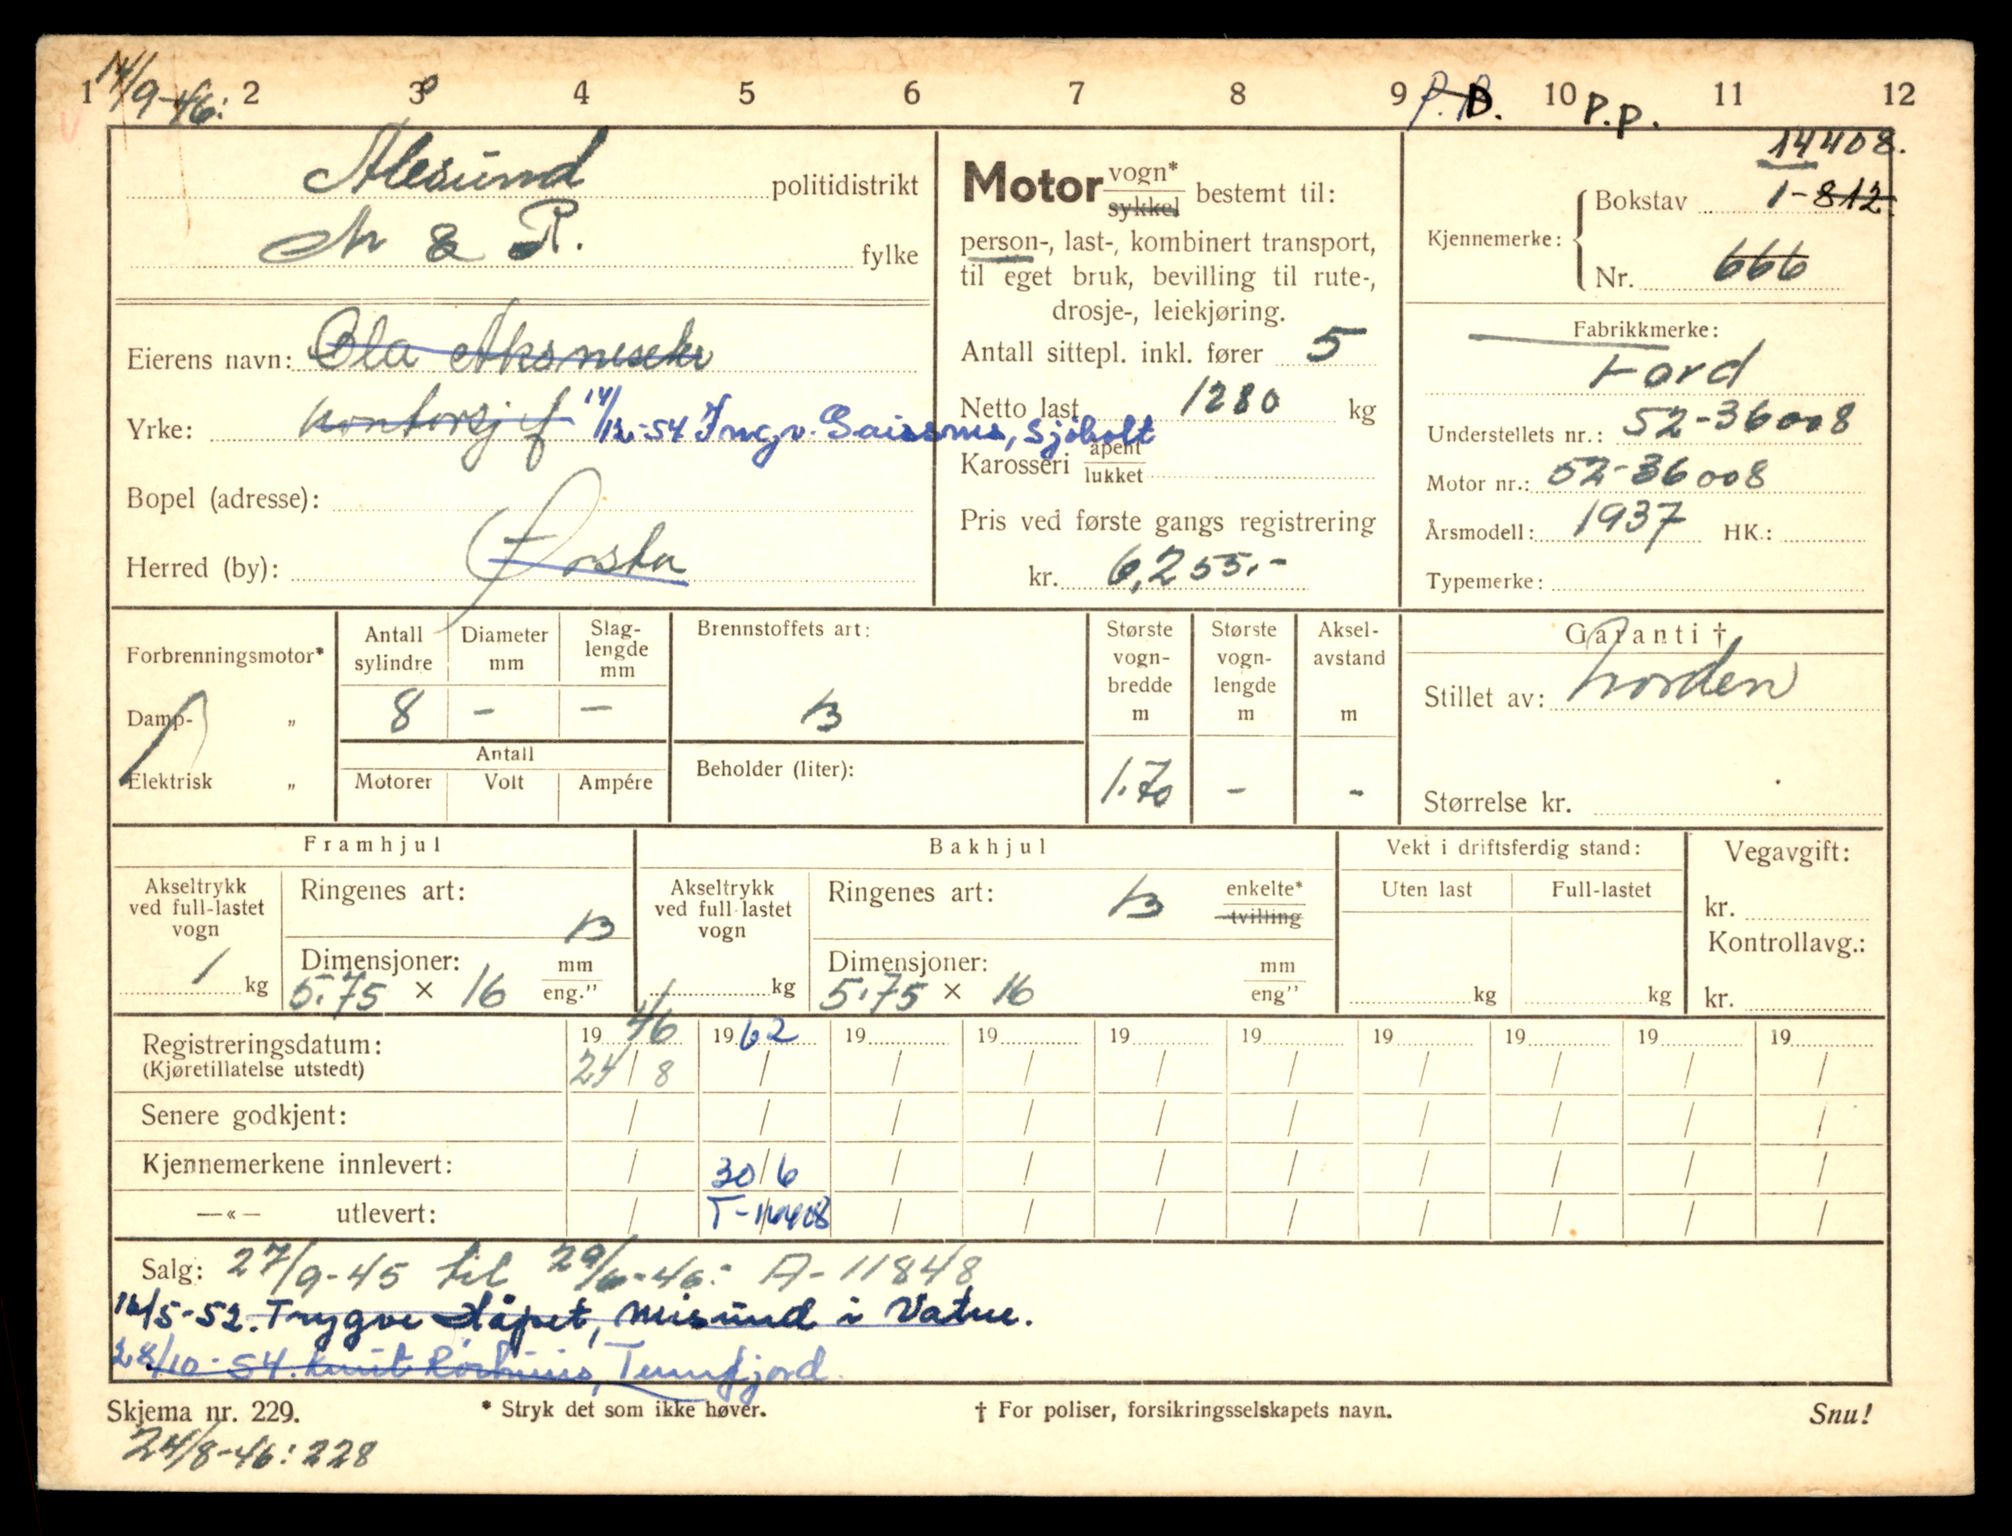 1 2 3 4 5 6 7 8 9 10 11 12
14/9-46:
P.P.
14408.
Ålesund politidistrikt
M & R. fylke
Motor vogn* sykkel bestemt til:
person-, last-, kombinert transport,
til eget bruk, bevilling til rute-,
drosje-, leiekjøring.
Antall sittepl. inkl. fører 5
Netto last 1280 kg
Karosseri åpent lukket
Pris ved første gangs registrering
kr. 6,255.-
Kjennemerke: Bokstav 1-812.
Nr. 666
Fabrikkmerke:
Ford
Understellets nr.: 52-36008
Motor nr.: 52-36008
Årsmodell: 1937 HK.:
Typemerke:
Eierens navn: Ola
Yrke: kontorsjef 14/12-54 Ingv. Sjøholt
Bopel (adresse):
Herred (by): Ørsta
Forbrenningsmotor*
Damp- „
Elektrisk „
Antall sylindre 8
Diameter mm -
Slaglengde mm -
Antall
Motorer Volt Ampére
Brennstoffets art:
B
Beholder (liter):
Største vognbredde m 1.70
Største vognlengde m -
Akselavstand m -
Garanti †
Stillet av: Norden
Størrelse kr.
Framhjul
Akseltrykk ved full-lastet vogn
/ kg
Ringenes art: B
Dimensjoner: 5.75 × 16 mm eng.”
Bakhjul
Akseltrykk ved full-lastet vogn
/ kg
Ringenes art: B enkelte* tvilling
Dimensjoner: 5.75 × 16 mm eng”
Vekt i driftsferdig stand:
Uten last Full-lastet
kg kg
Vegavgift:
kr.
Kontrollavg.:
kr.
Registreringsdatum: 19 46 19 62 19 19 19 19 19 19 19 19
(Kjøretillatelse utstedt) 24/8 / / / / / / / / /
Senere godkjent: / / / / / / / / / /
Kjennemerkene innlevert: / 30/6 / / / / / / / /
—«— utlevert: / T-14408 / / / / / / / /
Salg: 27/9-45 til 29/6-46: A-11848
16/5-52. Trygve Håpet, Misund i Vatne.
28/10-54. Knut Tennfjord.
Skjema nr. 229. * Stryk det som ikke høver. † For poliser, forsikringsselskapets navn. Snu!
24/8-46: 228